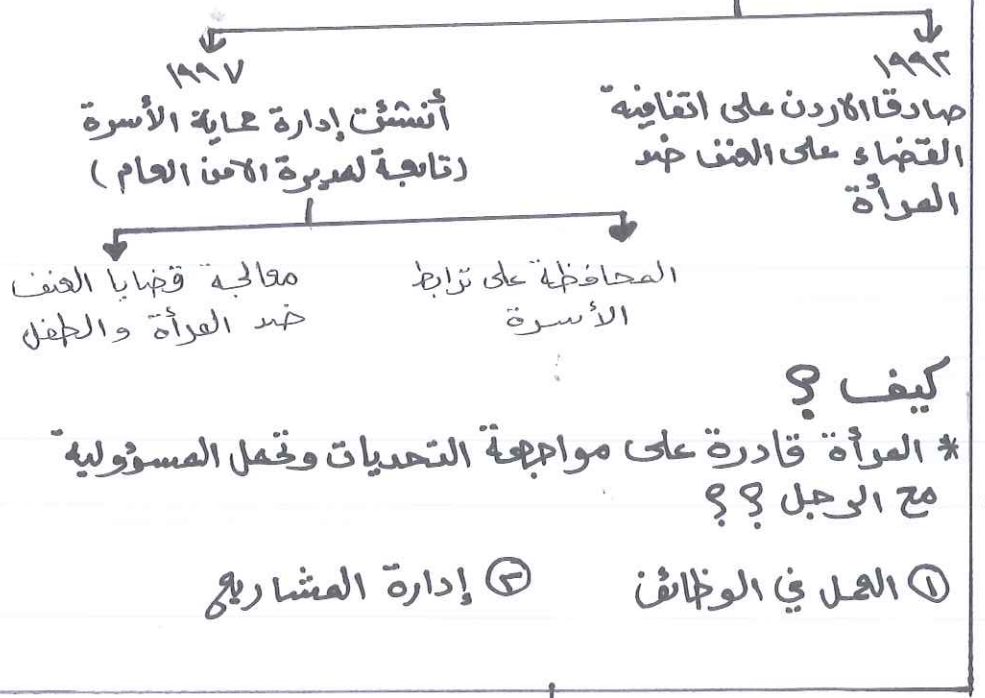 ١٩٩٢
صادقا الاردن على اتفاقية
القضاء على العنف ضد
المرأة
١٩٩٧
أنشئت إدارة حماية الأسرة
(تابعة لمديرة الامن العام)
المحافظة على ترابط
الأسرة
معالجة قضايا العنف
ضد المرأة والطفل
كيف ؟
* المرأة قادرة على مواجهة التحديات وتحمل المسؤولية
مع الرجل ؟؟
① العمل في الوظائف
② إدارة المشاريع